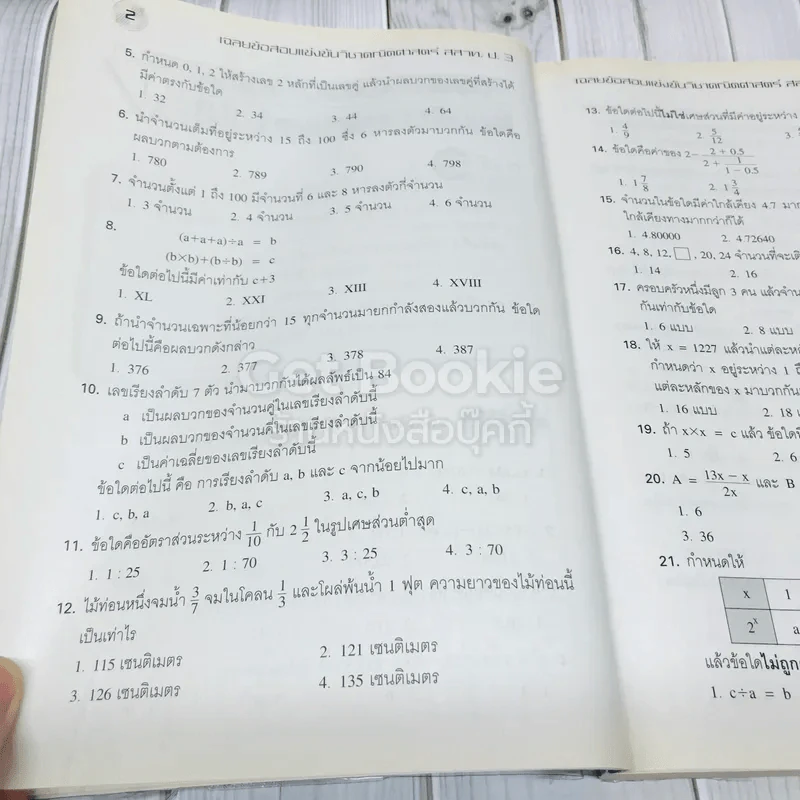 2
เฉลยข้อสอบแข่งขันวิชาคณิตศาสตร์ สสวท. ป. 3
5. กำหนด 0, 1, 2 ให้สร้างเลข 2 หลักที่เป็นเลขคู่ แล้วนำผลบวกของเลขคู่ที่สร้างได้
มีค่าตรงกับข้อใด
1. 32 2. 34 3. 44 4. 64
6. นำจำนวนเต็มที่อยู่ระหว่าง 15 ถึง 100 ซึ่ง 6 หารลงตัวมาบวกกัน ข้อใดคือ
ผลบวกตามต้องการ
1. 780 2. 789 3. 790 4. 798
7. จำนวนตั้งแต่ 1 ถึง 100 มีจำนวนที่ 6 และ 8 หารลงตัวกี่จำนวน
1. 3 จำนวน 2. 4 จำนวน 3. 5 จำนวน 4. 6 จำนวน
8.
(a+a+a)÷a = b
(b×b)+(b÷b) = c
ข้อใดต่อไปนี้มีค่าเท่ากับ c+3
1. XL 2. XXI 3. XIII 4. XVIII
9. ถ้านำจำนวนเฉพาะที่น้อยกว่า 15 ทุกจำนวนมายกกำลังสองแล้วบวกกัน ข้อใด
ต่อไปนี้คือผลบวกดังกล่าว
1. 376 2. 377 3. 378 4. 387
10. เลขเรียงลำดับ 7 ตัว นำมาบวกกันได้ผลลัพธ์เป็น 84
a เป็นผลบวกของจำนวนคู่ในเลขเรียงลำดับนี้
b เป็นผลบวกของจำนวนคี่ในเลขเรียงลำดับนี้
c เป็นค่าเฉลี่ยของเลขเรียงลำดับนี้
ข้อใดต่อไปนี้ คือ การเรียงลำดับ a, b และ c จากน้อยไปมาก
1. c, b, a 2. b, a, c 3. a, c, b 4. c, a, b
11. ข้อใดคืออัตราส่วนระหว่าง 1/10 กับ 2 1/2 ในรูปเศษส่วนต่ำสุด
1. 1 : 25 2. 1 : 70 3. 3 : 25 4. 3 : 70
12. ไม้ท่อนหนึ่งจมน้ำ 3/7 จมในโคลน 1/3 และโผล่พ้นน้ำ 1 ฟุต ความยาวของไม้ท่อนนี้
เป็นเท่าไร
1. 115 เซนติเมตร 2. 121 เซนติเมตร
3. 126 เซนติเมตร 4. 135 เซนติเมตร
Get Bookie
ร้านหนังสือบุ๊คกี้
เฉลยข้อสอบแข่งขันวิชาคณิตศาสตร์
13. ข้อใดต่อไปนี้ไม่ใช่เศษส่วนที่มีค่าอยู่ระหว่าง
1. 4/9 2. 5/12
14. ข้อใดคือค่าของ 2 - (2 + 0.5)/(2 + 1/(1 - 0.5))
1. 1 7/8 2. 1 3/4
15. จำนวนในข้อใดมีค่าใกล้เคียง 4.7
ใกล้เคียงทางมากกว่าก็ได้
1. 4.80000 2. 4.72640
16. 4, 8, 12, □, 20, 24 จำนวนที่จะเติ
1. 14 2. 16
17. ครอบครัวหนึ่งมีลูก 3 คน แล้วจำน
กันเท่ากับข้อใด
1. 6 แบบ 2. 8 แบบ
18. ให้ x = 1227 แล้วนำแต่ละหลั
กำหนดว่า x อยู่ระหว่าง 1 ถึ
แต่ละหลักของ x มาบวกกัน
1. 16 แบบ 2. 18
19. ถ้า x×x = c แล้ว ข้อใด
1. 5 2. 6
20. A = (13x - x)/2x และ B
1. 6
3. 36
21. กำหนดให้
x 1
2ˣ a
แล้วข้อใดไม่ถูก
1. c÷a = b